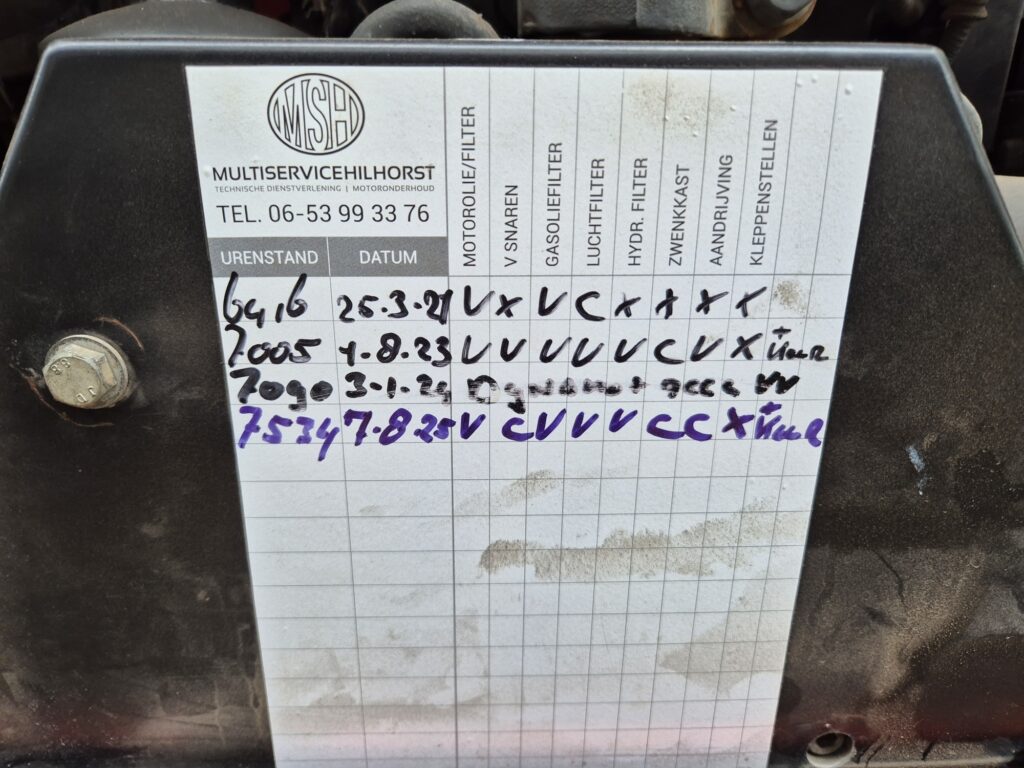 MSH
MULTISERVICEHILHORST
TECHNISCHE DIENSTVERLENING | MOTORONDERHOUD
TEL. 06-53 99 33 76
URENSTAND DATUM MOTOROLIE/FILTER V SNAREN GASOLIEFILTER LUCHTFILTER HYDR. FILTER ZWENKKAST AANDRIJVING KLEPPENSTELLEN
25.3.21 V X V C X X X X
7005 1.8.23 V V V V V C V X +
7090 3-1-24 Dynamo +
7534 7.8.25 V C V V V C C X +